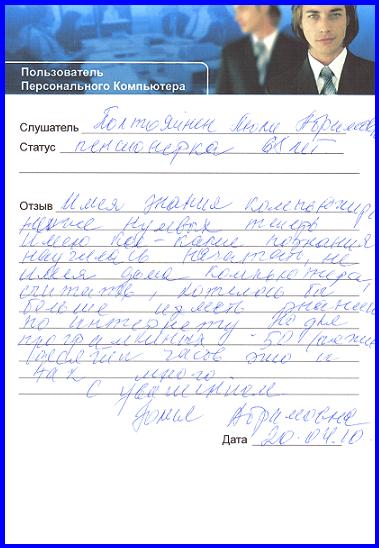 Пользователь
Персонального Компьютера
Слушатель
Статус пенсионерка лет
Отзыв Имея знания компьютера
ниже нулевых теперь
имею кое-какие познания
научилась печатать, не
имея дома компьютера,
считаю, хотелось бы
больше иметь знаний
по интернету. Но для
программ
часов это и
так много.
С уважением
Абрамовна
Дата 20.04.10.